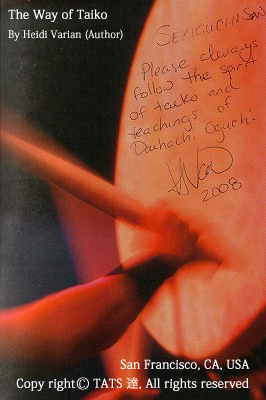 The Way of Taiko
By Heidi Varian (Author)
SEKIGUCHI-SAN
Please always
follow the spirit
of taiko and
teachings of
Daihachi Oguchi.
2008
San Francisco, CA, USA
Copy right© TATS 達, All rights reserved